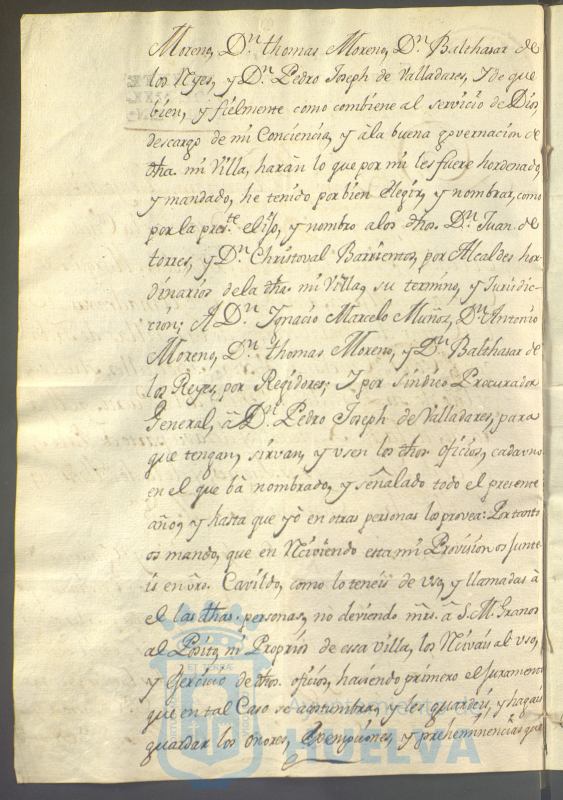 Moreno, Dn. thomas Moreno, Dn. Balthasar de
los Reyes, y Dn. Pedro Joseph de Valladares, Y de que
bien, y fielmente como combiene al servicio de Dios,
descargo de mi Conciencia, y à la buena governacion de
dha. mi Villa, haràn lo que por mi les fuere hordenado,
y mandado, he tenido por bien elegir, y nombrar, como
por la preste. elijo, y nombro a los dhos. Dn. Juan de
torres, y Dn. Christoval Barrientos, por Alcaldes hor-
dinarios de la dha. mi Villa, su termino, y Jurisdic-
cion; A Dn. Ignacio Marcelo Muñoz, Dn. Antonio
Moreno, Dn. thomas Moreno, y Dn. Balthasar de
los Reyes, por Regidores; Y por Sindico Procurador
General, à Dn. Pedro Joseph de Valladares, para
que tengan, sirvan, y usen los dhos. oficios, cada uno
en el que bà nombrado, y señalado todo el presente
año, y hasta que yò en otras personas los provea: Por tanto
os mando, que en Reciviendo esta mi Provision os junte-
is en vro. Cavildo, como lo teneis de uso, y llamadas à
el las dhas. personas, no deviendo mrs. à S. M. Granos
al Posito, ni Proprios de esa villa, los Recivais al uso,
y exercicio de dhos. oficios, haciendo primero el juramento
que en tal Caso se acostumbra, y les guardeis, y hagais
guardar los onores, exempciones, y prehemminencias que
ET TERRAE
Ayuntamiento de
HUELVA